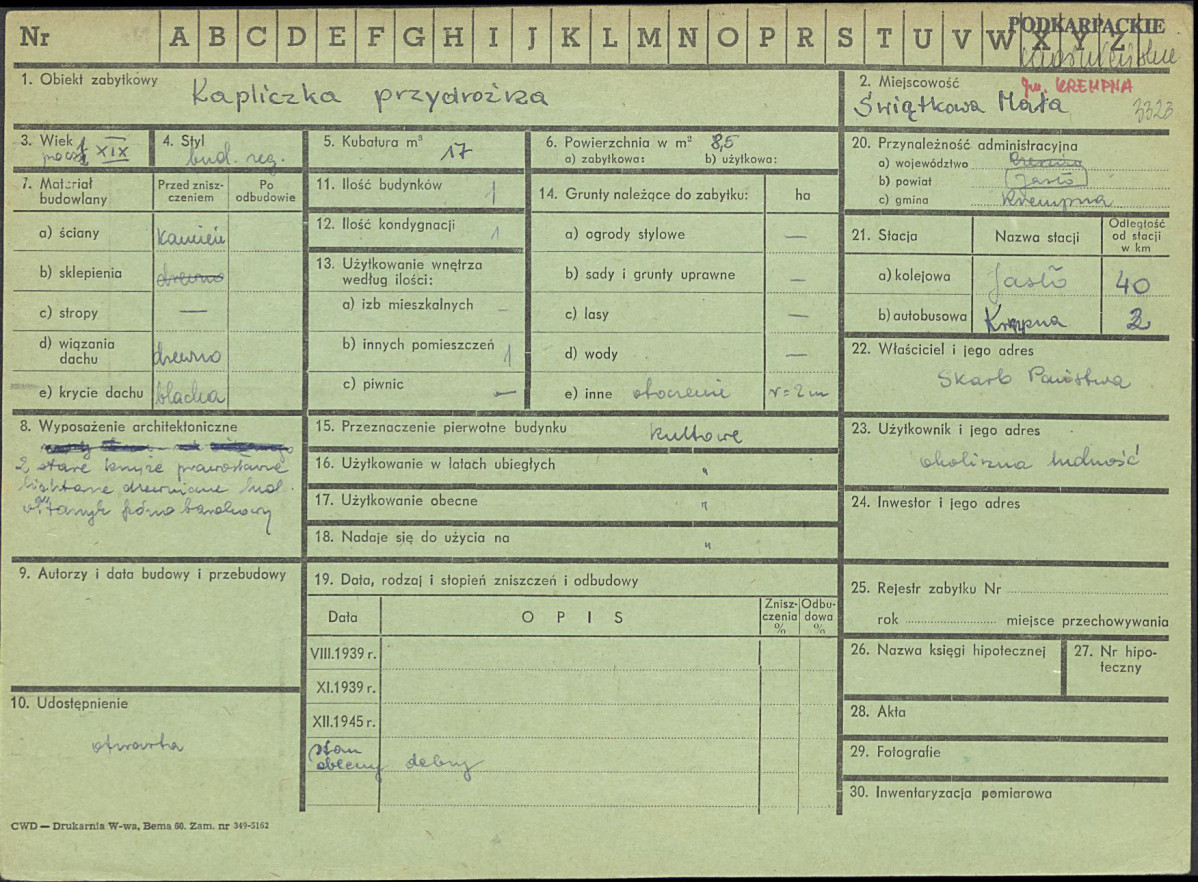 PODKARPACKIE
Nr A B C D E F G H I J K L M N O P R S T U V W X Y Z
1. Obiekt zabytkowy
Kapliczka przydrożna
2. Miejscowość
gm. KREMPNA
Świątkowa Mała
3323
3. Wiek
pocz. XIX
4. Styl
bud. reg.
5. Kubatura m³
17
6. Powierzchnia w m² 8,5
a) zabytkowa: b) użytkowa:
7. Materiał budowlany
Przed zniszczeniem
Po odbudowie
a) ściany kamień
b) sklepienia drewno
c) stropy —
d) wiązania dachu drewno
e) krycie dachu blacha
8. Wyposażenie architektoniczne
2 stare
drewniane lud.
późno barokowy
9. Autorzy i data budowy i przebudowy
10. Udostępnienie
otwarta
11. Ilość budynków 1
12. Ilość kondygnacji 1
13. Użytkowanie wnętrza według ilości:
a) izb mieszkalnych –
b) innych pomieszczeń 1
c) piwnic —
14. Grunty należące do zabytku: ha
a) ogrody stylowe —
b) sady i grunty uprawne —
c) lasy —
d) wody —
e) inne otoczenie r = 2 m
15. Przeznaczenie pierwotne budynku kultowe
16. Użytkowanie w latach ubiegłych "
17. Użytkowanie obecne "
18. Nadaje się do użycia na "
19. Data, rodzaj i stopień zniszczeń i odbudowy
Data O P I S Zniszczenia % Odbudowa %
VIII.1939 r.
XI.1939 r.
XII.1945 r.
stan
obecny dobry
20. Przynależność administracyjna
a) województwo
b) powiat Jasło
c) gmina Krempna
21. Stacja Nazwa stacji Odległość od stacji w km
a) kolejowa Jasło 40
b) autobusowa Krempna 2
22. Właściciel i jego adres
Skarb Państwa
23. Użytkownik i jego adres
okoliczna ludność
24. Inwestor i jego adres
25. Rejestr zabytku Nr
rok miejsce przechowywania
26. Nazwa księgi hipotecznej
27. Nr hipoteczny
28. Akta
29. Fotografie
30. Inwentaryzacja pomiarowa
CWD — Drukarnia W-wa, Bema 60. Zam. nr 349-5162